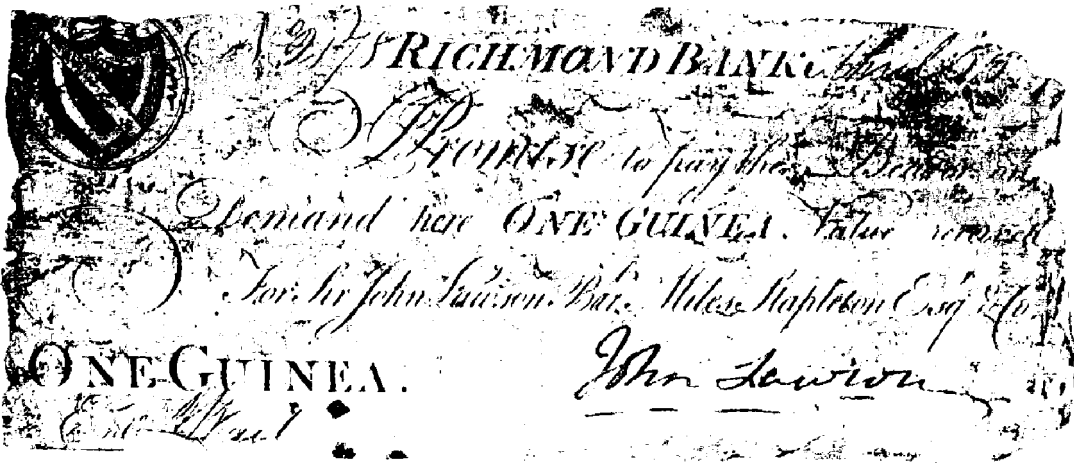 No 3178 RICHMOND BANK
I Promise to pay the Bearer on
Demand here ONE GUINEA. Value received
For Sir John Lawson Bar.t Miles Stapleton Esq.r & Co.
ONE GUINEA.
John Lawson
Ent.